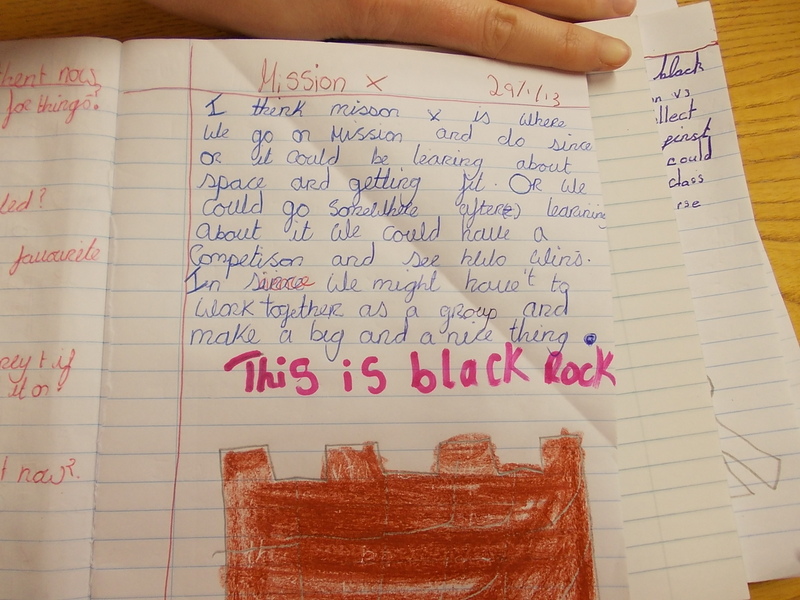 hent now
for things?
ded?
favourite
ney t if
it on
t now?.
Mission X
29/1/13
I think misson x is where
We go on Mission and do since
or it could be learing about
space and getting fit. OR We
could go somewhite after learining
About it We could have a
Competison and see who wins.
In since We might have't to
Work together as a group and
make a big and a nice thing.
This is black Rock
black
n vs
llect
first
could
class
rse